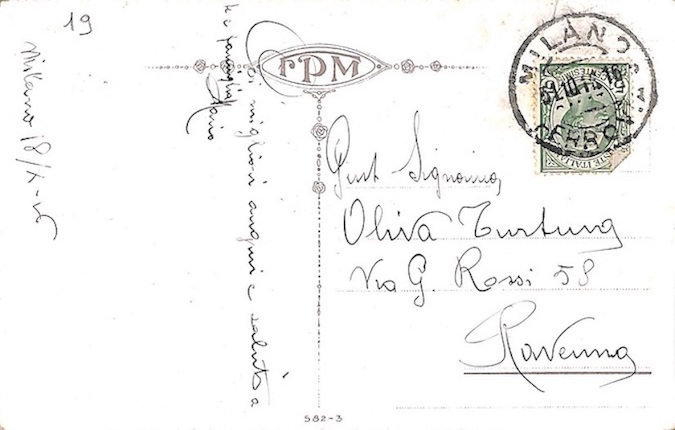 19
Milano 18/X-16
I migliori auguri e saluti a
te e famiglia
Mario
rPM
MILANO
FERROVIA
POSTE ITALIANE
Gent Signorina,
Oliva Turtung
Via G. Rossi 58
Ravenna
582-3